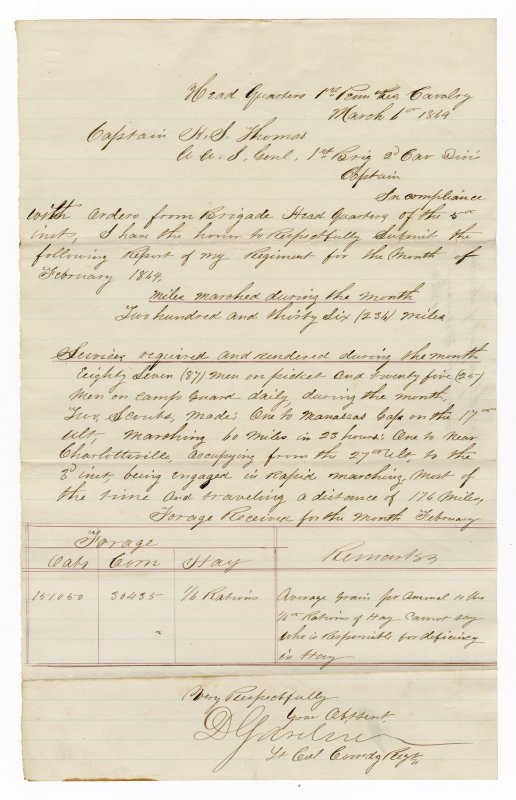 Head Quarters 1st Penn Res Cavalry
March 6th 1864
Captain H. S. Thomas
A. A. I. Genl. 1st Brig 2d Cav Divis
Captain
In compliance
with orders from Brigade Head Quarters of the 5th
inst, I have the honor to Respectfully Submit the
following Report of my Regiment for the Month of
February 1864,
Miles marched during the month
Two hundred and thirty Six (236) Miles
Services required and rendered during the month
Eighty Seven (87) Men on picket and twenty five (25)
Men on camp guard daily during the month,
Two, Scouts, made: One to Manassas Gap on the 17th
Ult, Marching 60 Miles in 23 hours: One to near
Charlottsville, occupying from the 27th Ult, to the
2d inst, being engaged in Rapid marching, Most of
the time and traveling a distance of 176 Miles,
Forage Received for the Month February
Forage
Oats Corn Hay Remarks
151050 30435 1/6 Rations Average Grain per Animal 10 lbs
Rations of Hay Cannot say
who is Responsible for deficiency
in Hay
Very Respectfully
Your Obt Servt.
D Gardner
Lt Col Comdg Regt